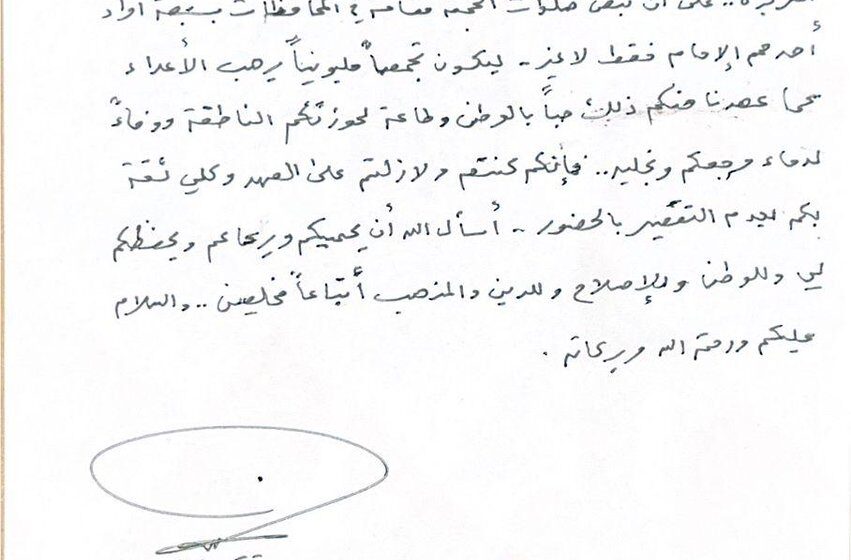 على أن تبقى صلوات الجمعة مقامة في المحافظات بسبعة أفراد
أحدهم الإمام فقط لا غير.. ليكون تجمعاً مليونياً يرهب الأعداء
عهدنا منكم ذلك حباً بالوطن وطاعة لحوزتكم الناطقة ووفاءً
لدماء مرجعكم ونجليه.. فإنكم كنتم ولا زلتم على العهد وكلي ثقة
بكم بعدم التقصير بالحضور.. أسأل الله أن يحميكم ويرعاكم ويحفظكم
لي وللوطن وللإصلاح وللدين والمذهب أتباعاً مخلصين.. والسلام
عليكم ورحمة الله وبركاته.